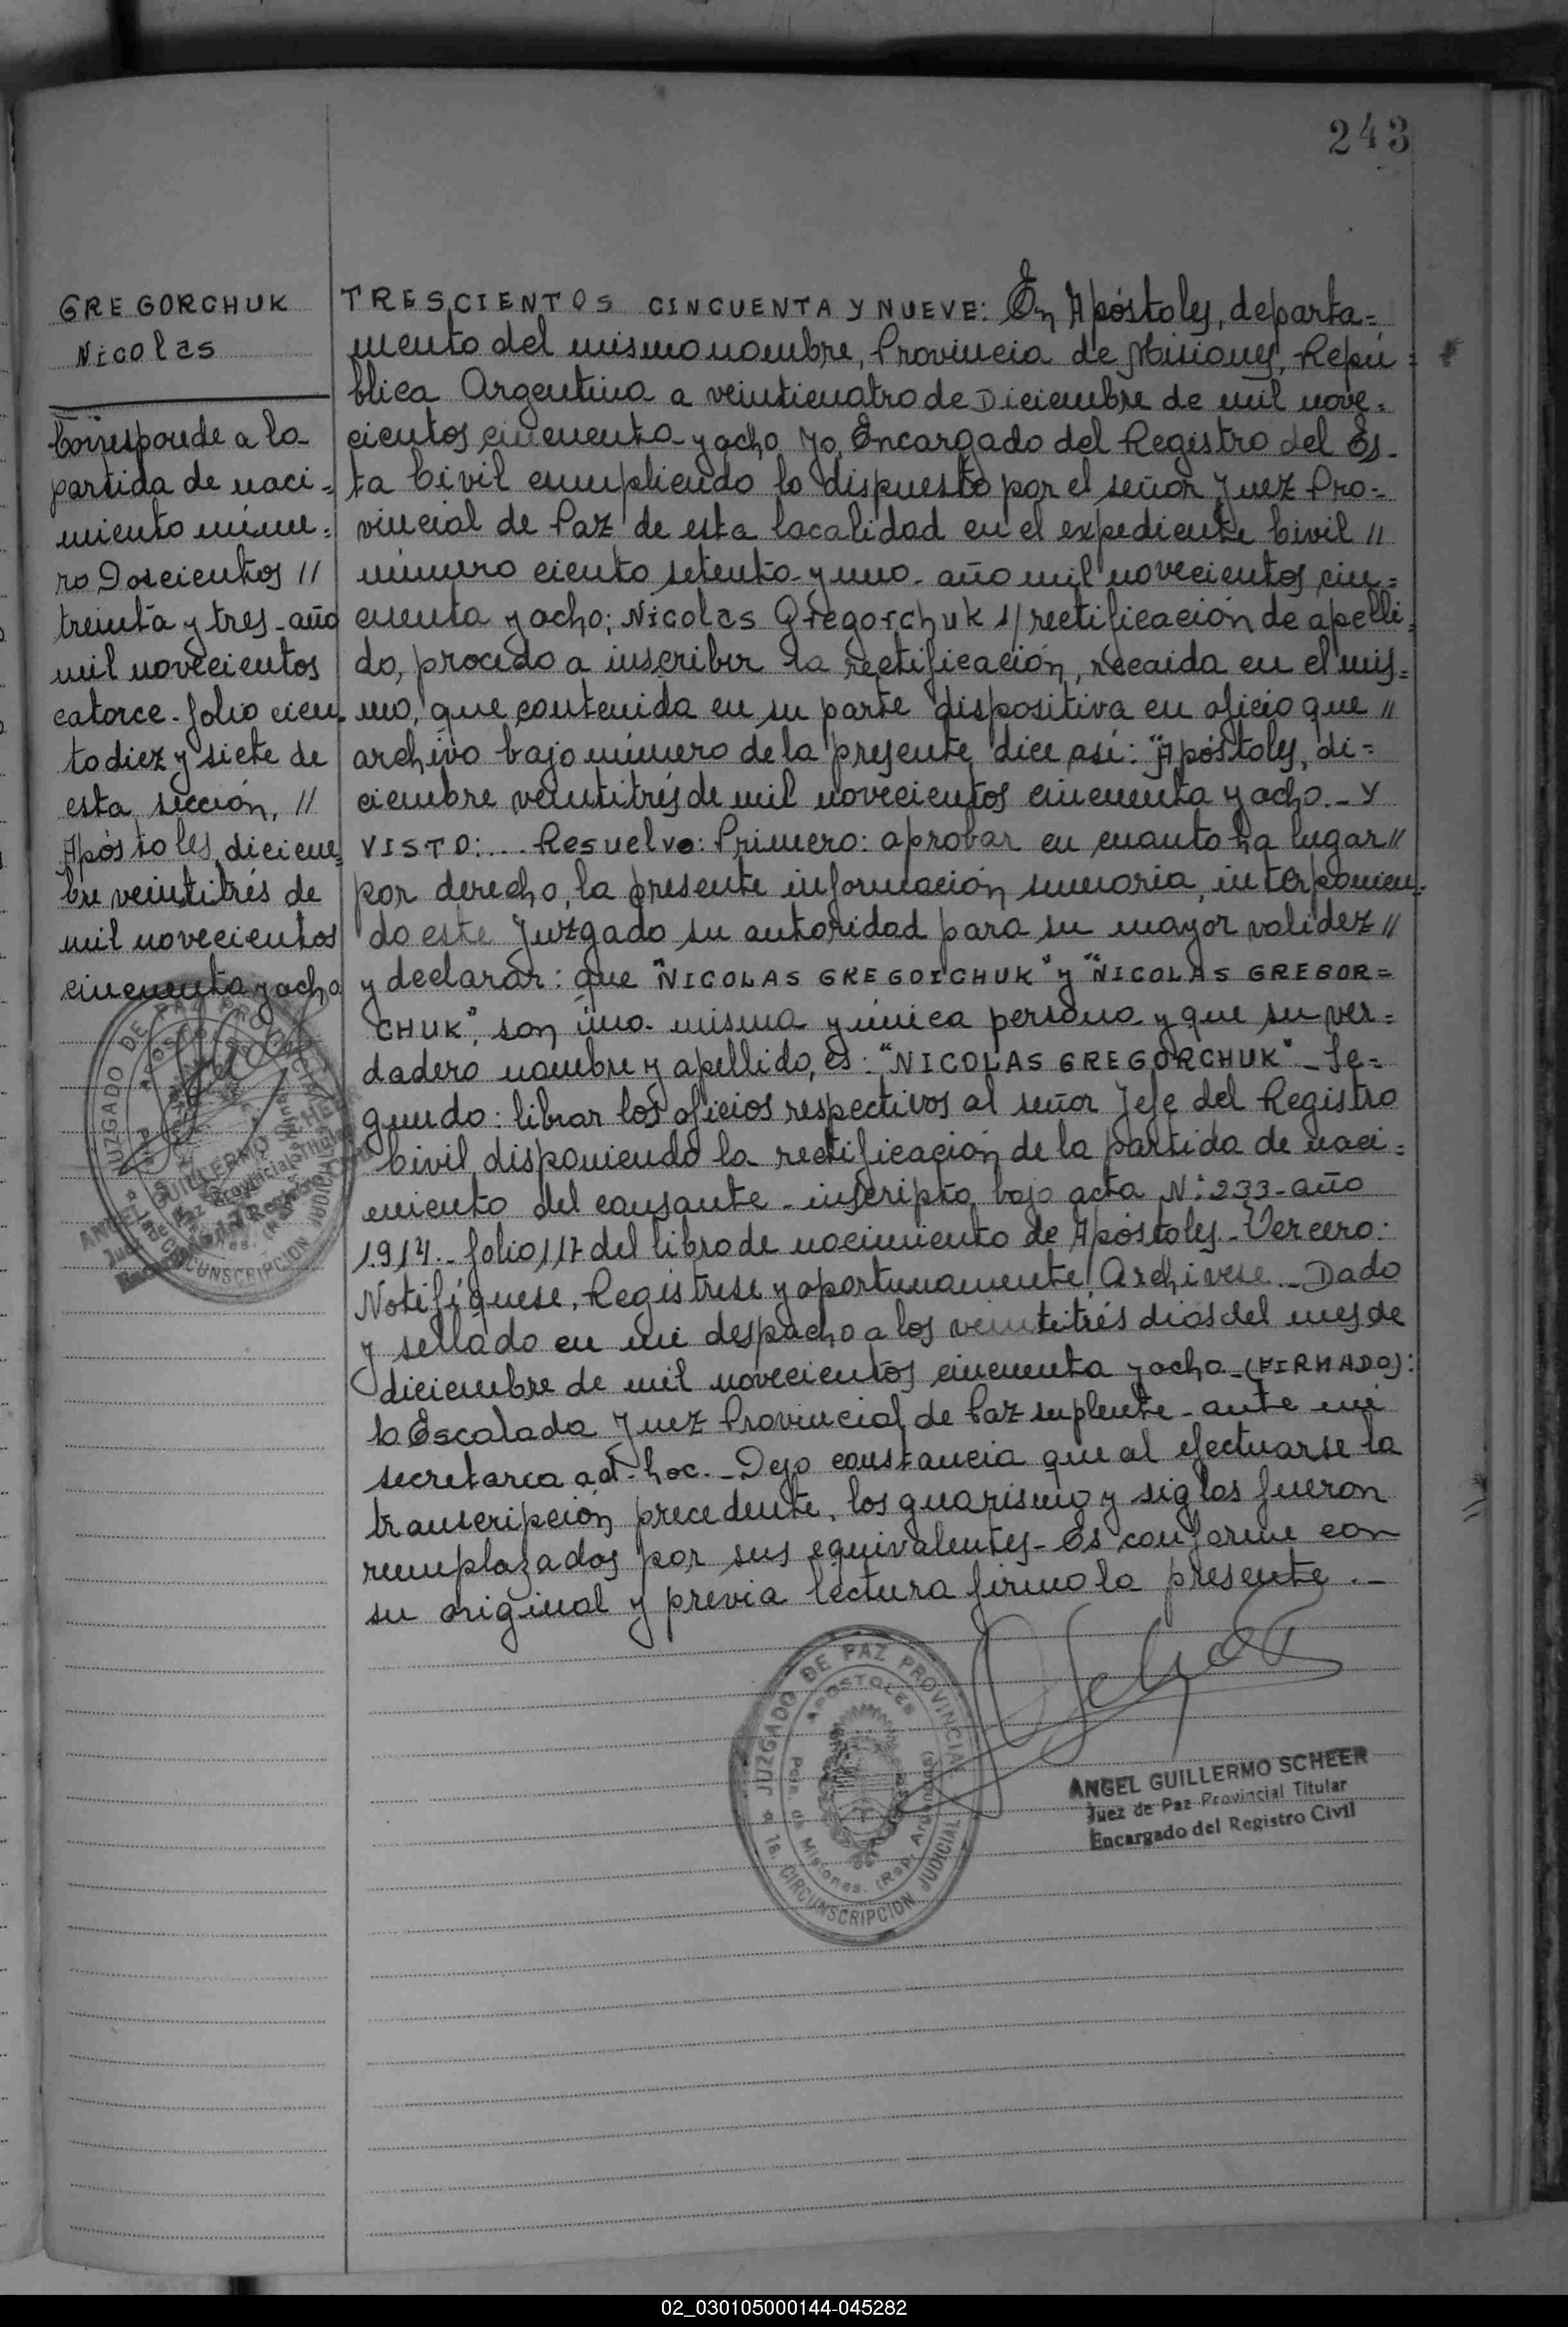 243
GREGORCHUK
Nicolas
Corresponde a la
partida de naci=
miento núme=
ro Doscientos //
treinta y tres-año
mil novecientos
catorce-folio cien
to diez y siete de
esta sección, //
Apóstoles, diciem=
bre veintitrés de
mil novecientos
cincuenta y ocho
TRESCIENTOS CINCUENTA Y NUEVE: En Apóstoles, departa=
mento del mismo nombre, Provincia de Misiones, Repú=
blica Argentina a veinticuatro de Diciembre de mil nove=
cientos cincuenta y ocho yo, Encargado del Registro del Es-
ta Civil cumpliendo lo dispuesto por el señor Juez Pro=
vincial de Paz de esta localidad en el expediente Civil //
número ciento setenta y uno- año mil novecientos cin=
cuenta y ocho; Nicolas Gregorchuk s/ rectificación de apelli=
do, procedo a inscribir la rectificación, recaida en el mis=
mo, que contenida en su parte dispositiva en oficio que //
archivo bajo número de la presente dice así: "Apóstoles, di=
ciembre veintitrés de mil novecientos cincuenta y ocho.- Y
VISTO:... Resuelvo: Primero: aprobar en cuanto ha lugar //
por derecho, la presente información sumaria, interponien=
do este Juzgado su autoridad para su mayor validez //
y declarar: que "NICOLAS GREGOICHUK" y "NICOLAS GREGOR=
CHUK", son una misma y única persona y que su ver=
dadero nombre y apellido, es: "NICOLAS GREGORCHUK"- Se=
gundo: librar los oficios respectivos al señor Jefe del Registro
Civil disponiendo la rectificación de la partida de naci=
miento del causante-inscripta bajo acta N: 233-año
1914.- folio 117 del libro de nacimiento de Apóstoles-Tercero:
Notifíquese, Regístrese y oportunamente Archívese.- Dado
y sellado en mi despacho a los veintitrés días del mes de
diciembre de mil novecientos cincuenta y ocho-(FIRMADO):
Escalada Juez Provincial de Paz suplente-ante mi
secretaria ad-hoc.- Dejo constancia que al efectuarse la
transcripción precedente, los guarismo y siglas fueron
remplazados por sus equivalentes- Es conforme con
su original y previa lectura firmo la presente.-
JUZGADO DE PAZ PROVINCIAL
APOSTOLES
Pcia. de Misiones. (Rep. Argentina)
1a. CIRCUNSCRIPCION JUDICIAL
ANGEL GUILLERMO SCHEER
Juez de Paz Provincial Titular
Encargado del Registro Civil
02_030105000144-045282